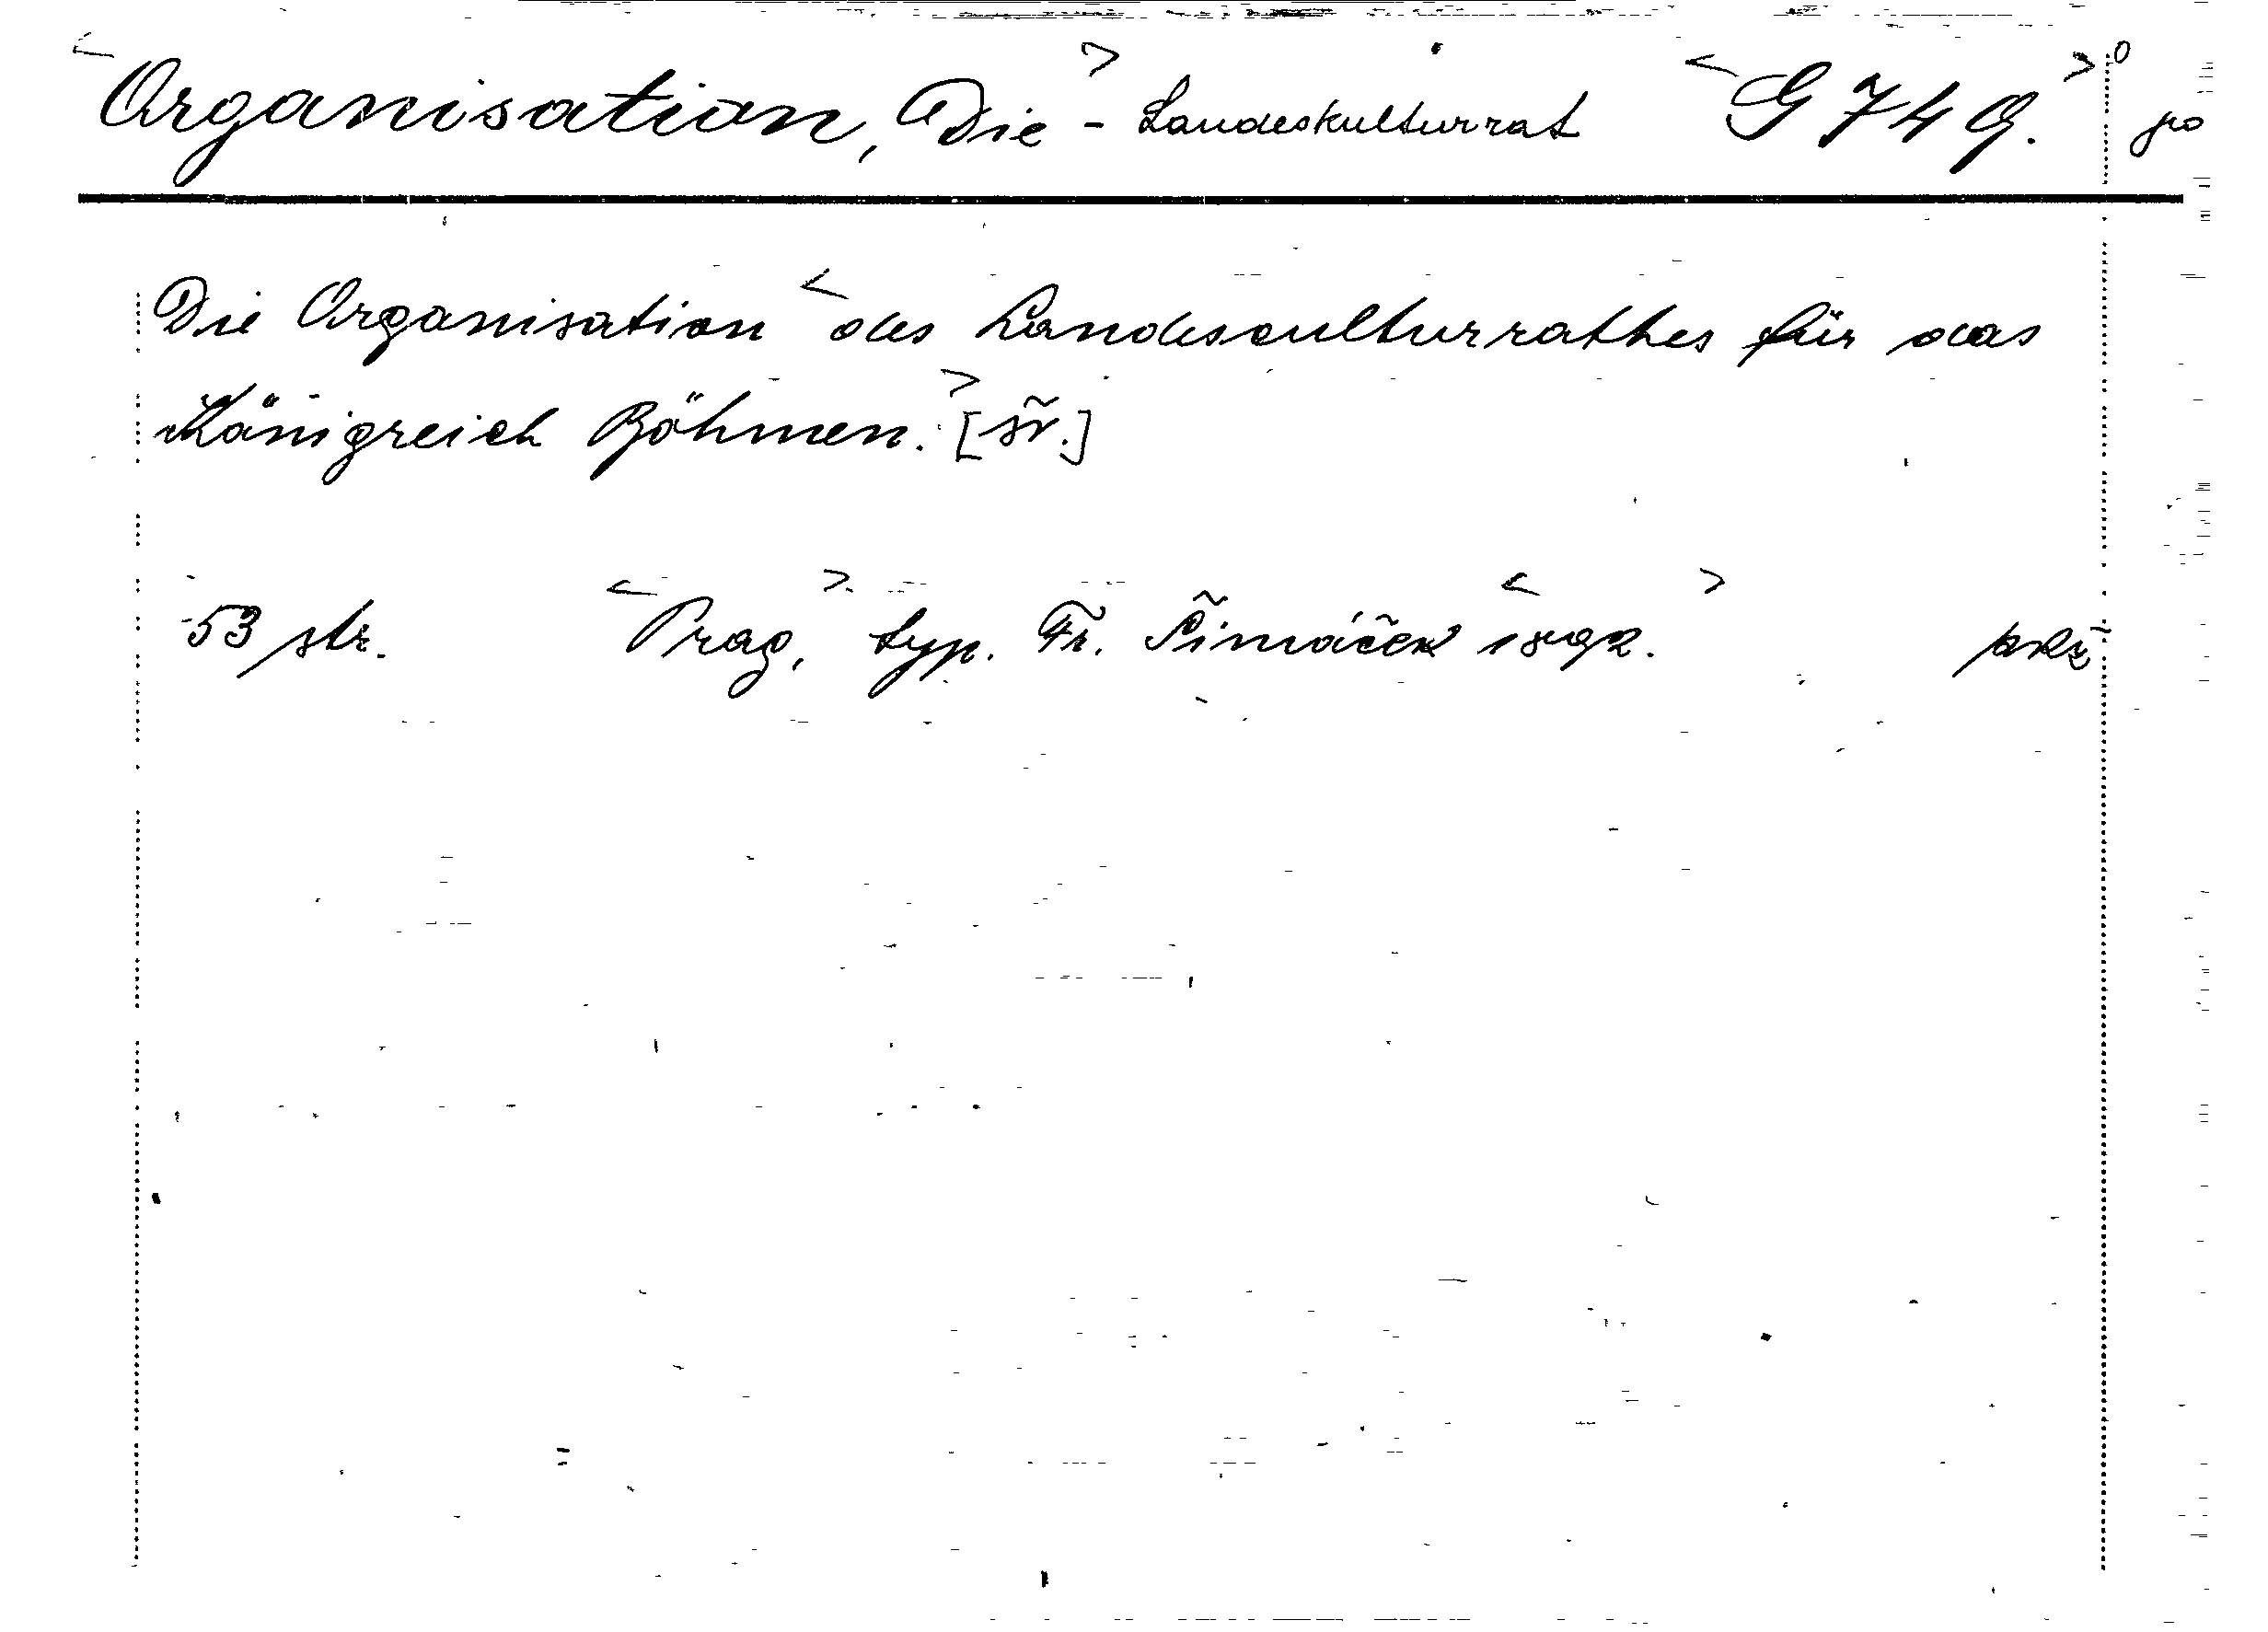 Organisation, Die - Landeskulturrat G 749.
Die Organisation des Landesculturrathes für das
Königreich Böhmen. [sv.]
53 str. Prag, typ. Fr. Šimáček 1892.